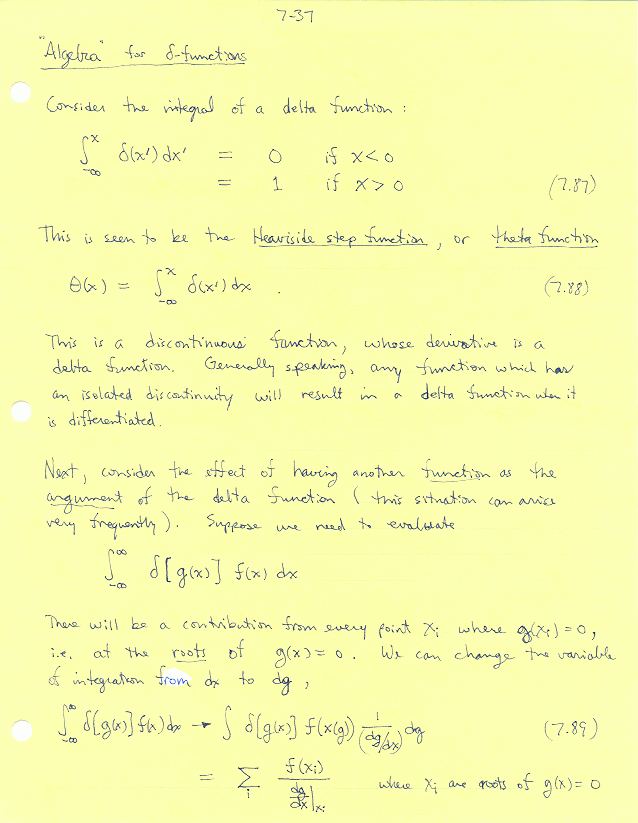 7-37
"Algebra" for δ-functions
Consider the integral of a delta function :
∫_{-∞}^{x} δ(x') dx' = 0 if x < 0
= 1 if x > 0 (7.87)
This is seen to be the Heaviside step function, or theta function
Θ(x) = ∫_{-∞}^{x} δ(x') dx . (7.88)
This is a discontinuous function, whose derivative is a
delta function. Generally speaking, any function which has
an isolated discontinuity will result in a delta function when it
is differentiated.
Next, consider the effect of having another function as the
argument of the delta function ( this situation can arise
very frequently ). Suppose we need to evaluate
∫_{-∞}^{∞} δ[g(x)] f(x) dx
There will be a contribution from every point x_i where g(x_i) = 0,
i.e. at the roots of g(x) = 0. We can change the variable
of integration from dx to dg,
∫_{-∞}^{∞} δ[g(x)] f(x) dx → ∫ δ[g(x)] f(x(g)) 1/(dg/dx) dg (7.89)
= Σ_i f(x_i) / (dg/dx)|_{x_i} where x_i are roots of g(x) = 0